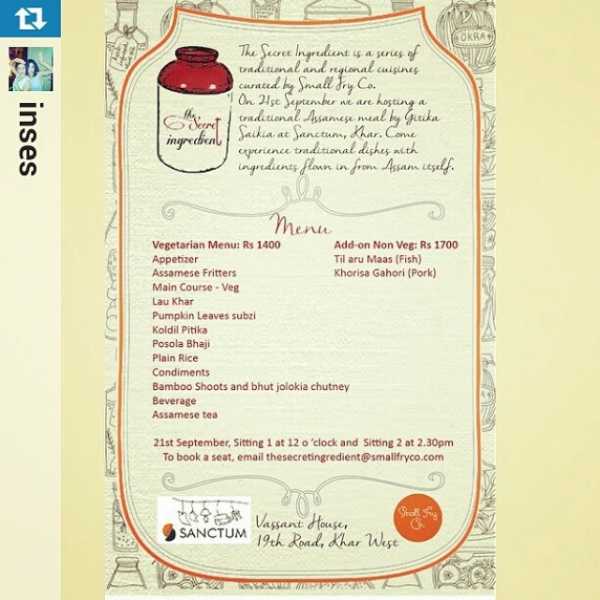 inses
OKRA
the
Secret
ingredient
The Secret Ingredient is a series of
traditional and regional cuisines
curated by Small Fry Co.
On 21st September we are hosting a
traditional Assamese meal by Gitika
Saikia at Sanctum, Khar. Come
experience traditional dishes with
ingredients flown in from Assam itself.
Menu
Vegetarian Menu: Rs 1400
Appetizer
Assamese Fritters
Main Course - Veg
Lau Khar
Pumpkin Leaves subzi
Koldil Pitika
Posola Bhaji
Plain Rice
Condiments
Bamboo Shoots and bhut jolokia chutney
Beverage
Assamese tea
Add-on Non Veg: Rs 1700
Til aru Maas (Fish)
Khorisa Gahori (Pork)
21st September, Sitting 1 at 12 o 'clock and Sitting 2 at 2.30pm
To book a seat, email thesecretingredient@smallfryco.com
SANCTUM
Vassant House,
19th Road, Khar West
Small Fry
Co.